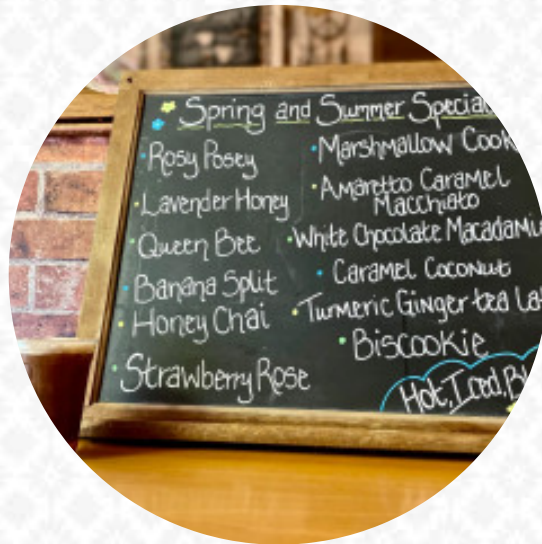 Spring and Summer
Rosy Posey
Lavender Honey
Queen Bee
Banana Split
Honey Chai
Strawberry Rose
Marshmallow
Amaretto Caramel
Macchiato
White Chocolate
Caramel Coconut
Turmeric Ginger tea
Biscookie
Hot, Iced,